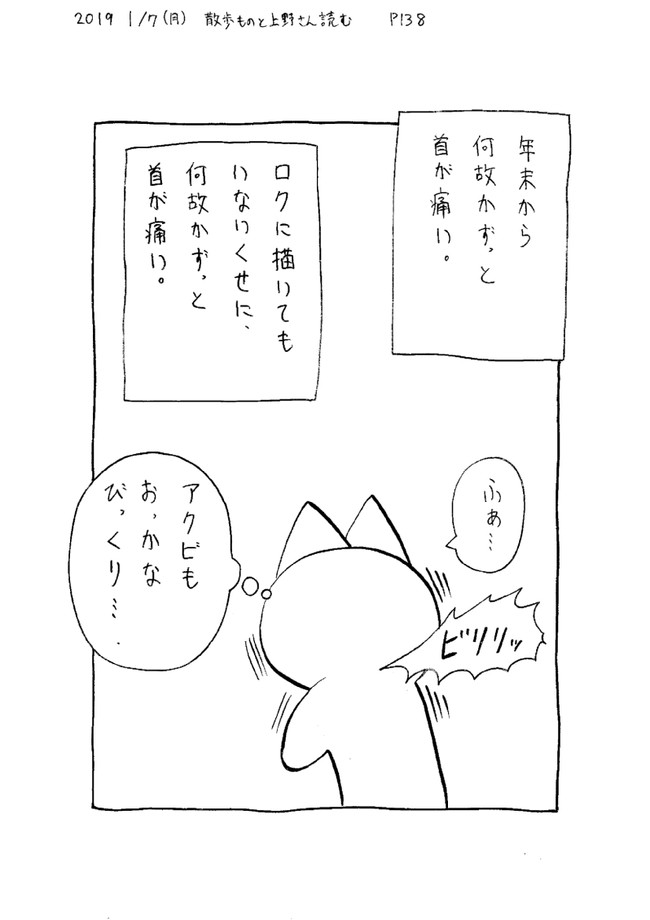 2019 1/7(月) 散歩ものと上野さん読む P138
年末から
何故かずっと
首が痛い。
ロクに描いても
いないくせに、
何故かずっと
首が痛い。
ふぁ…
ビリリッ
アクビも
おっかな
びっくり…．